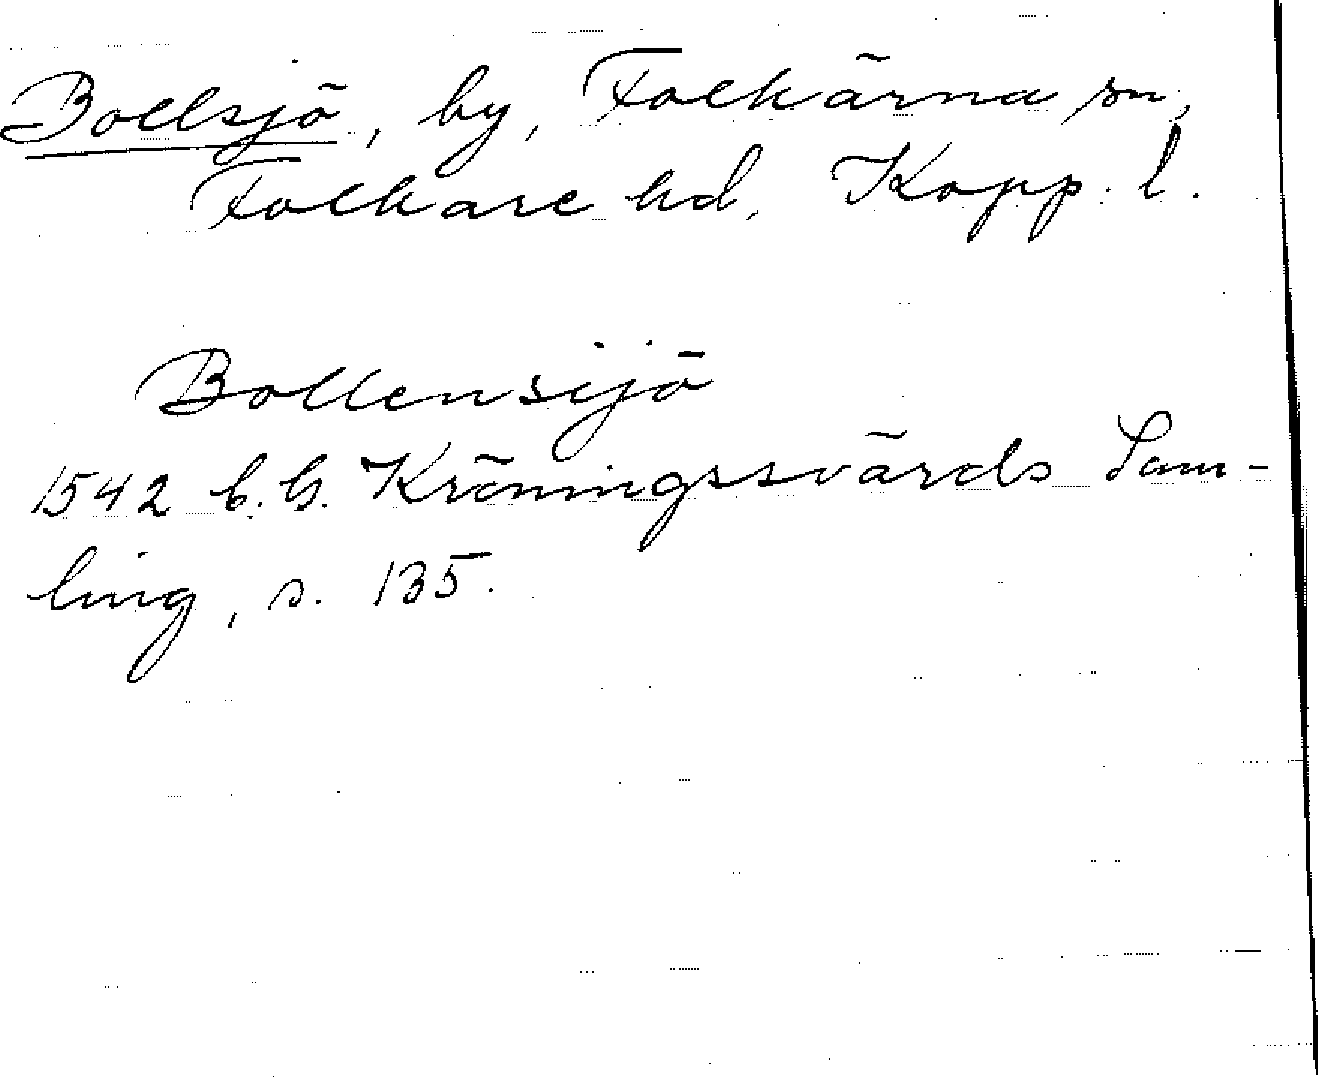 Bollsjö, by, Folkärna sn,
Folkare hd, Kopp. l.
Bollensijö
1542 C.G. Kröningssvärds Sam-
ling, s. 135.